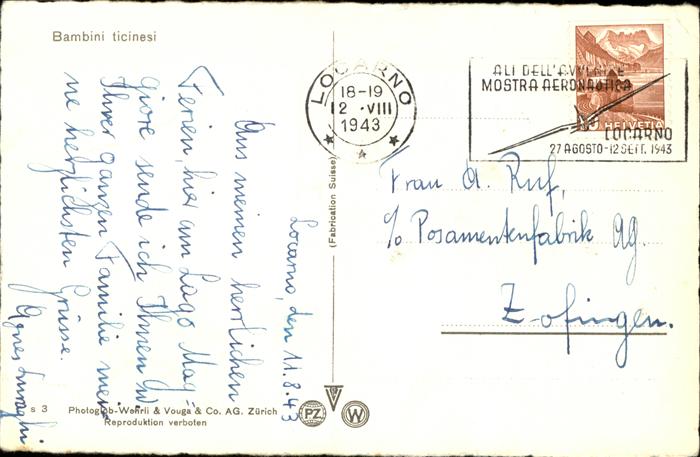 Bambini ticinesi
Locarno, den 11.8.43
Aus meinen herrlichen
Ferien, hier am Lago Mag=
giore sende ich Ihnen u.
Ihrer ganzen Familie mei
ne herzlichsten Grüsse.
Agnes
s 3
Photoglob-Wehrli & Vouga & Co. AG. Zürich
Reproduktion verboten
(Fabrication Suisse)
PZ
W
LOCARNO
18-19
12 · VIII
1943
ALI DELL'AVVENIRE
MOSTRA AERONAUTICA
LOCARNO
27 AGOSTO-12 SETT. 1943
HELVETIA
Frau A. Ruf,
c/o Posamentenfabrik AG.
Zofingen.